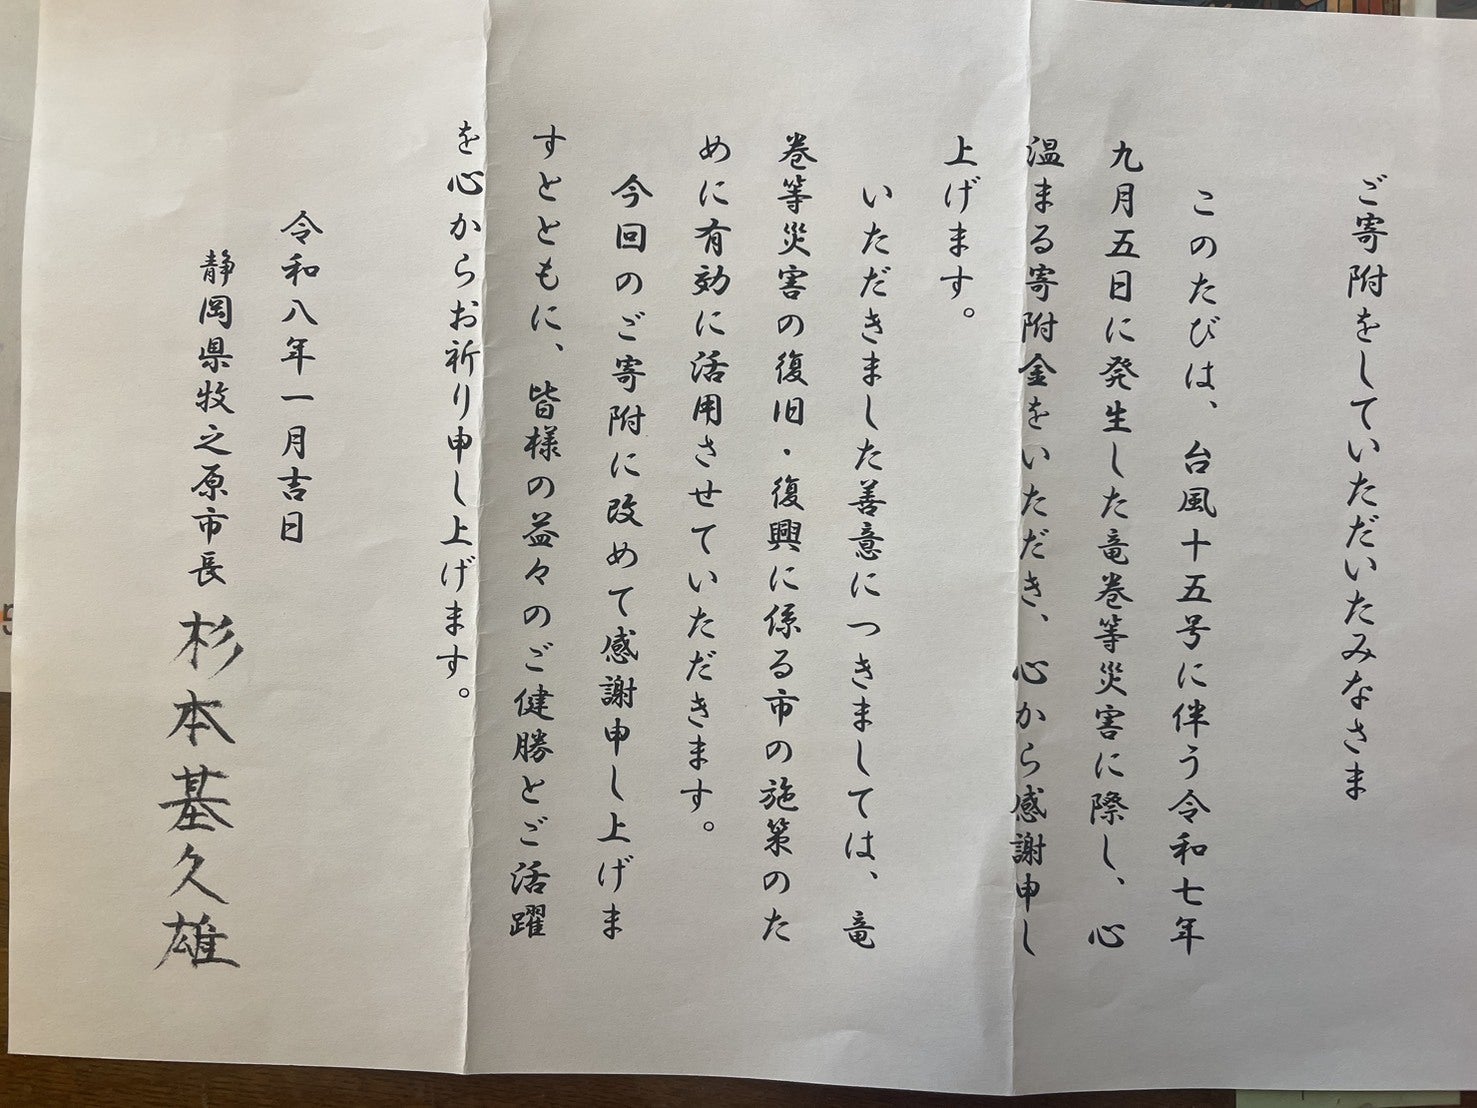 ご寄附をしていただいたみなさま
このたびは、台風十五号に伴う令和七年
九月五日に発生した竜巻等災害に際し、心
温まる寄附金をいただき、心から感謝申し
上げます。
いただきました善意につきましては、竜
巻等災害の復旧・復興に係る市の施策のた
めに有効に活用させていただきます。
今回のご寄附に改めて感謝申し上げま
すとともに、皆様の益々のご健勝とご活躍
を心からお祈り申し上げます。
令和八年一月吉日
静岡県牧之原市長 杉本基久雄